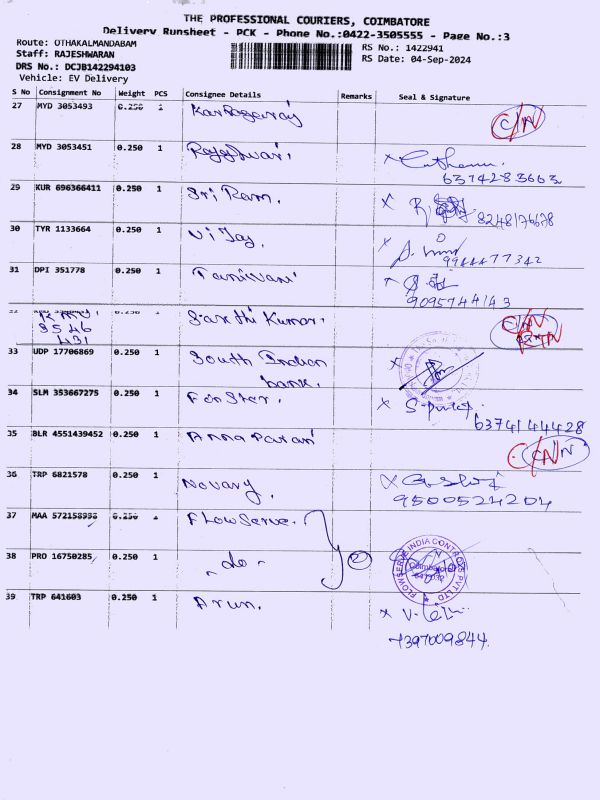 THE PROFESSIONAL COURIERS, COIMBATORE
Delivery Runsheet - PCK - Phone No.:0422-3505555 - Page No.:3
Route: OTHAKALMANDABAM
Staff: RAJESHWARAN
DRS No.: DCJB142294103
Vehicle: EV Delivery
RS No.: 1422941
RS Date: 04-Sep-2024
S No Consignment No Weight PCS Consignee Details Remarks Seal & Signature
27 MYD 3053493 0.250 1 C/N
28 MYD 3053451 0.250 1 Rajeshwari. x
6374283663
29 KUR 696366411 0.250 1 Sri Ram. x
8248176678
30 TYR 1133664 0.250 1 Vijay. x
9944477342
31 DPI 351778 0.250 1 x
9095744143
Sarthi Kumar. C/N
8546
431
33 UDP 17706869 0.250 1 South Indian x
bank.
34 SLM 353667275 0.250 1 Forster. x
6374144428
35 BLR 4551439452 0.250 1 C/N
36 TRP 6821578 0.250 1 Novary. x
9500524204
37 MAA 572158998 0.250 1 Flowserve.
38 PRO 16750285 0.250 1 - do - 2 FLOWSERVE INDIA CONTROLS PVT LTD
Coimbatore
39 TRP 641603 0.250 1 Arun. x
7397009844